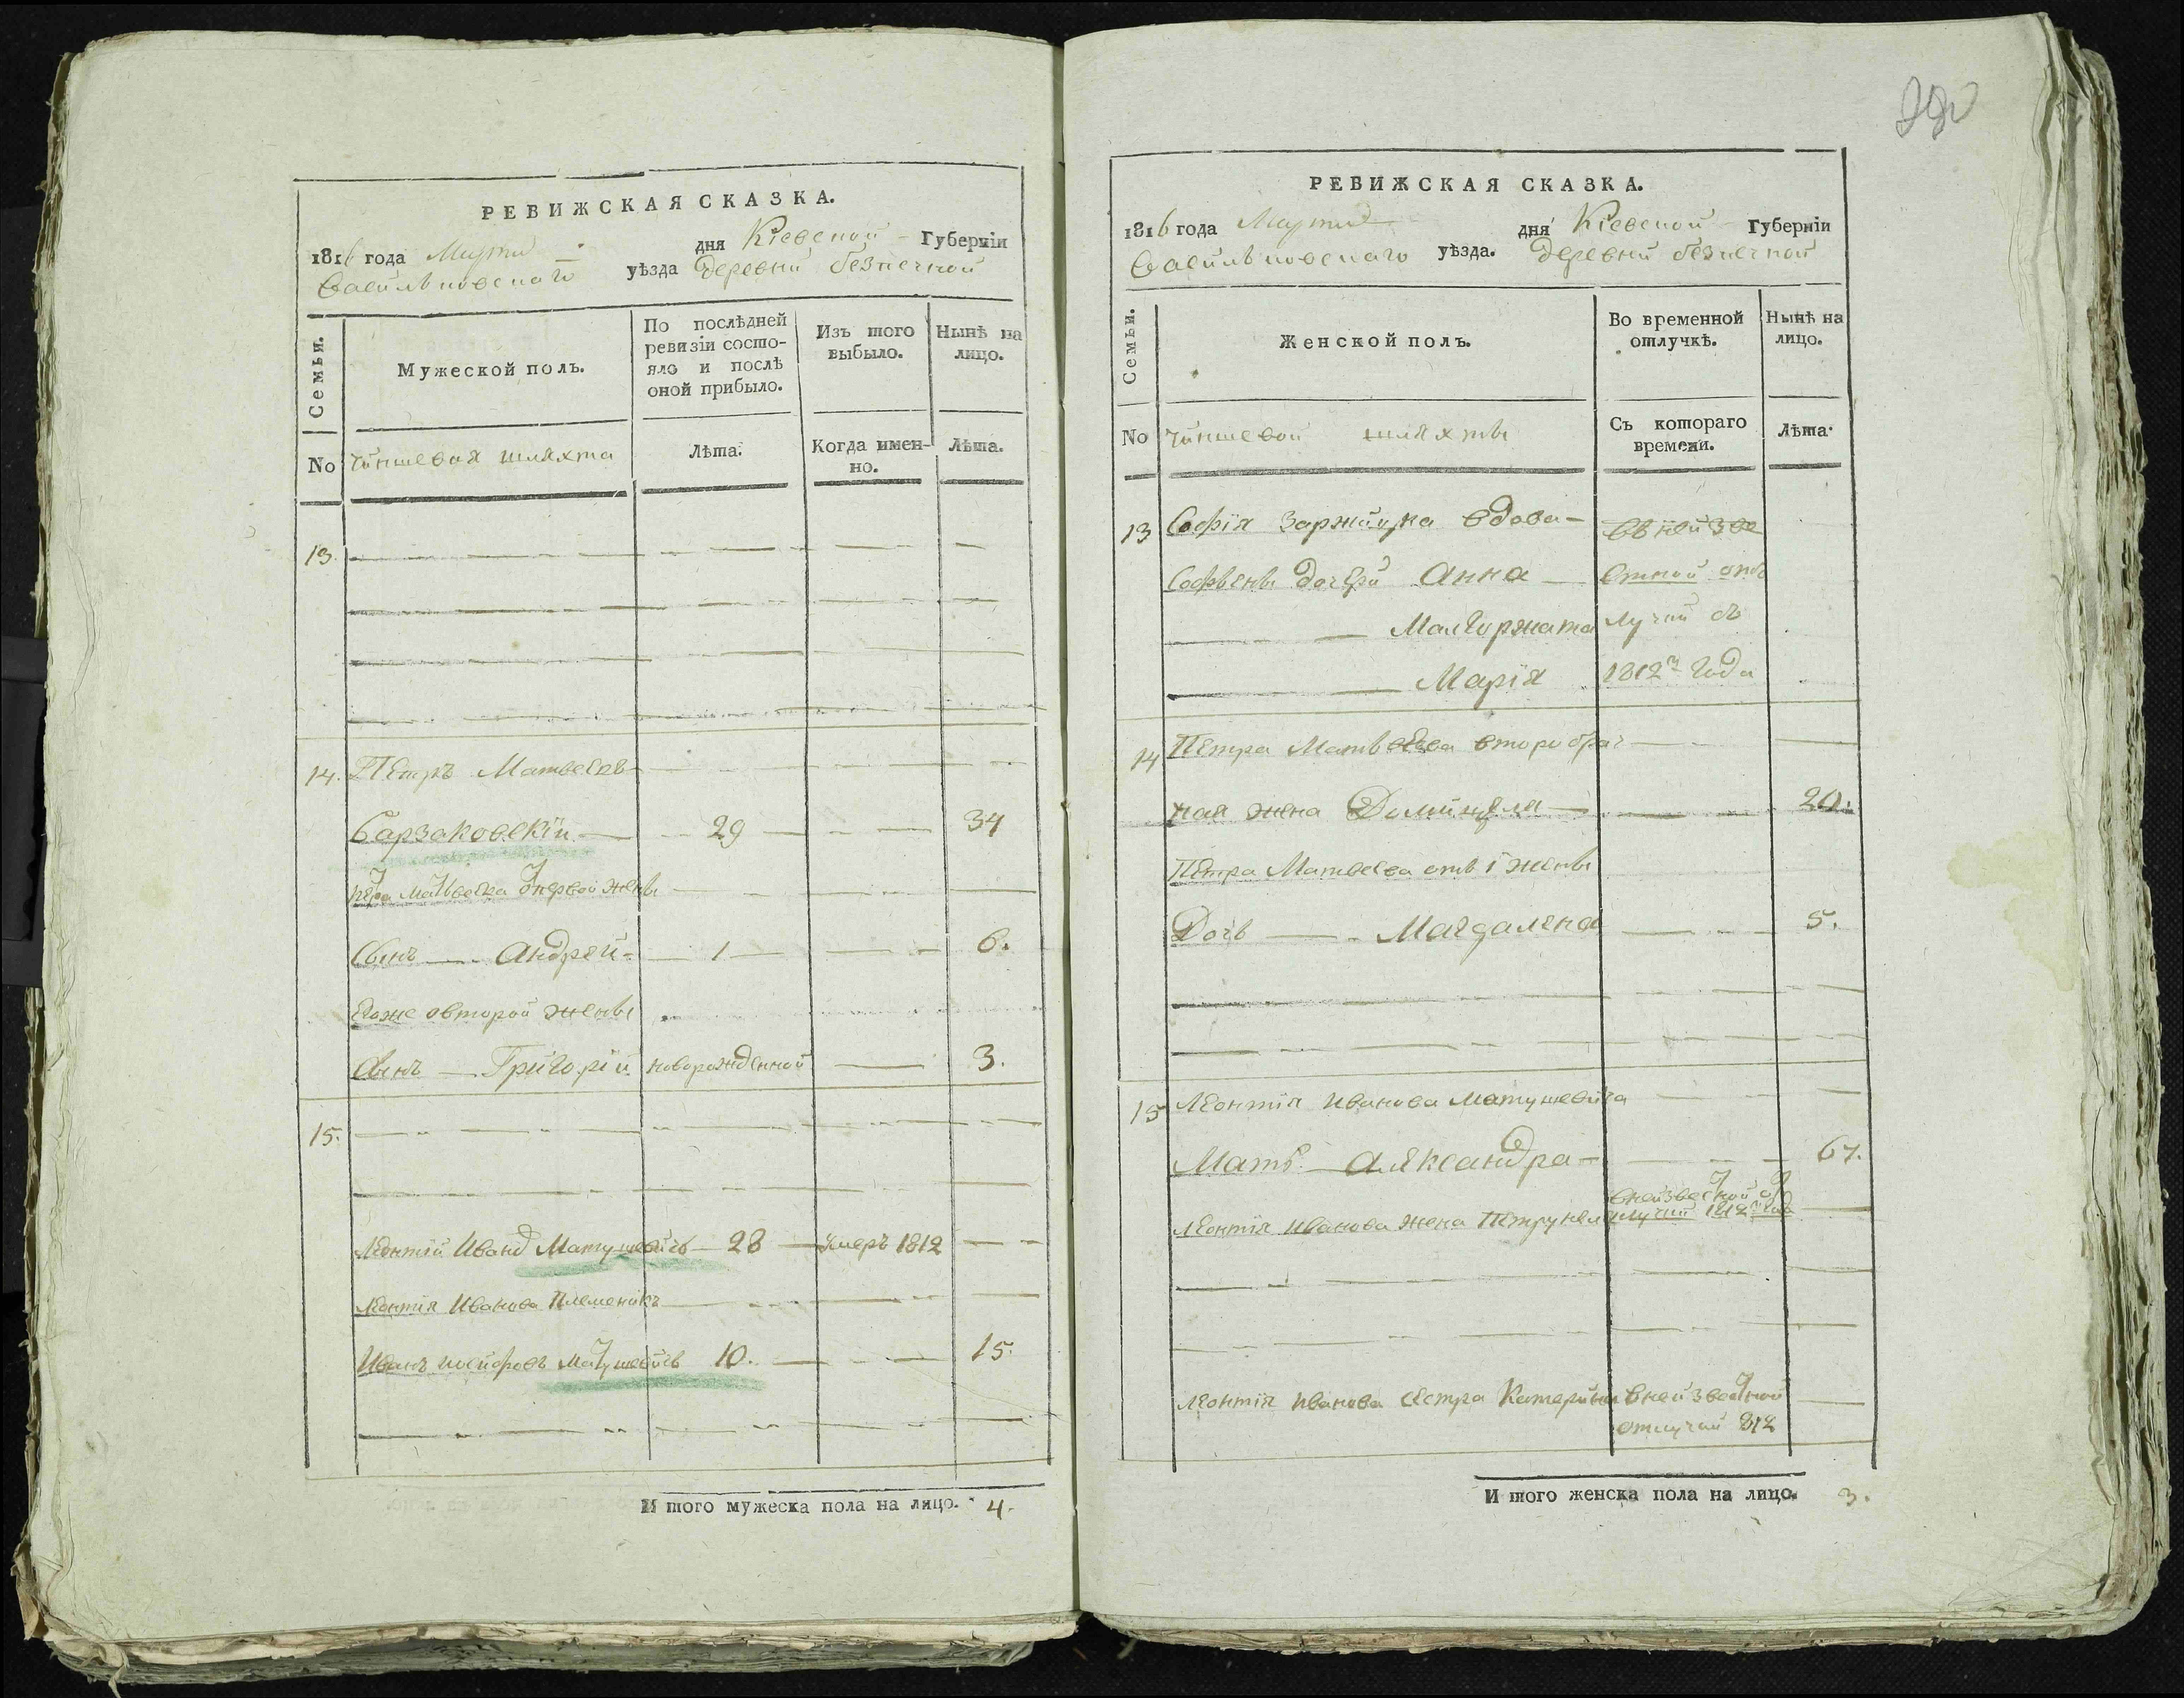 РЕВИЖСКАЯ СКАЗКА.
1816 года Марта дня Кіевской Губерніи
Васильковскаго уѣзда Деревни безпечной
Семьи.
Мужеской полъ.
По послѣдней ревизіи состояло и послѣ оной прибыло.
Изъ того выбыло.
Нынѣ на лицо.
No чиншевая шляхта
Лѣта.
Когда именно.
Лѣта.
13.
14. Петръ Матвеевъ
Барзаковскій 29 34
Петра Матвеева от первой жены
Сынъ Андрей 1 6.
Егоже от второй жены
Сынъ Григорій новорожденной 3.
15.
Леонтій Иванов Матушевичъ 28 умеръ 1812
Леонтія Иванова Племеникъ
Иванъ иосифовъ Матушевичъ 10. 15.
И того мужеска пола на лицо. 4.
РЕВИЖСКАЯ СКАЗКА.
1816 года Марта дня Кіевской Губерніи
Васильковскаго уѣзда. Деревни безпечной
Семьи.
Женской полъ.
Во временной отлучкѣ.
Нынѣ на лицо.
No чиншевой шляхты
Съ котораго времени.
Лѣта.
13 Софія вдова въ неизве
Софьены дочери Анна стной отъ
Малгоржата лучки съ
Марія 1812го Года
14 Петра Матвеева второбрач
ная жена Домицеля 20.
Петра Матвеева отъ 1 жены
Дочь Магдалена 5.
15 Леонтія Иванова Матушевича
Мать Александра 67.
Леонтія Иванова жена Петрунеля в неизвестной отлучки 1812го года
Леонтія Иванова сестра Катерина в неизвестной
отлучки 812
И того женска пола на лицо. 3.